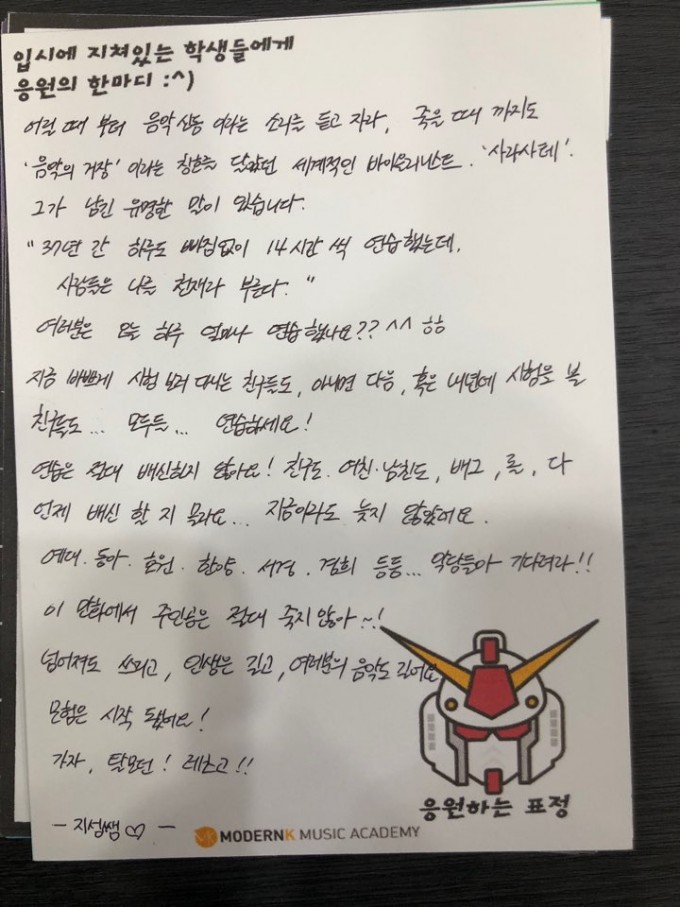 입시에 지쳐있는 학생들에게
응원의 한마디 :^)
어릴 때 부터 음악신동 이라는 소리를 듣고 자라, 죽을 때 까지도
'음악의 거장' 이라는 칭호를 달았던 세계적인 바이올리니스트. '사라사테'.
그가 남긴 유명한 말이 있습니다.
" 37년 간 하루도 빠짐없이 14시간 씩 연습했는데,
사람들은 나를 천재라 부른다. "
여러분은 오늘 하루 얼마나 연습했나요?? ^^ ㅎㅎ
지금 바쁘게 시험 보러 다니는 친구들도, 아니면 다음, 혹은 내년에 시험을 볼
친구들도... 모두들... 연습하세요!
연습은 절대 배신하지 않아요! 친구도. 여친·남친도, 배그, 롤, 다
언제 배신 할 지 몰라요... 지금이라도 늦지 않았어요.
예대. 동아. 호원. 한양. 서경. 경희 등등... 악당들아 기다려라!!
이 만화에서 주인공은 절대 죽지않아~!
넘어져도 쓰리고, 인생은 길고, 여러분의 음악도 길어요
모험은 시작 됐어요!
가자, 탈모던! 레츠고!!
- 지섭쌤♡ -
응원하는 표정
MODERNK MUSIC ACADEMY